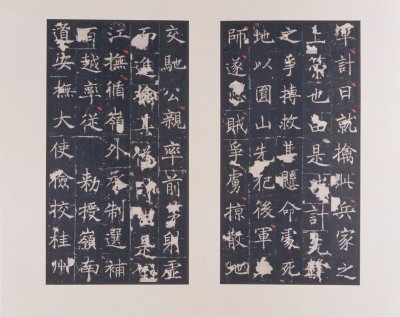 軍計日就擒此兵家之
上策也由是計
之爭搏救其懸命處死
地以圓山先犯後軍
師遂恣賊爭虜掠散地
交馳公親率前射虛
而進擒其從是
江撫循嶺外承制選補
百越率從 勅授嶺南
道安撫大使檢校桂州